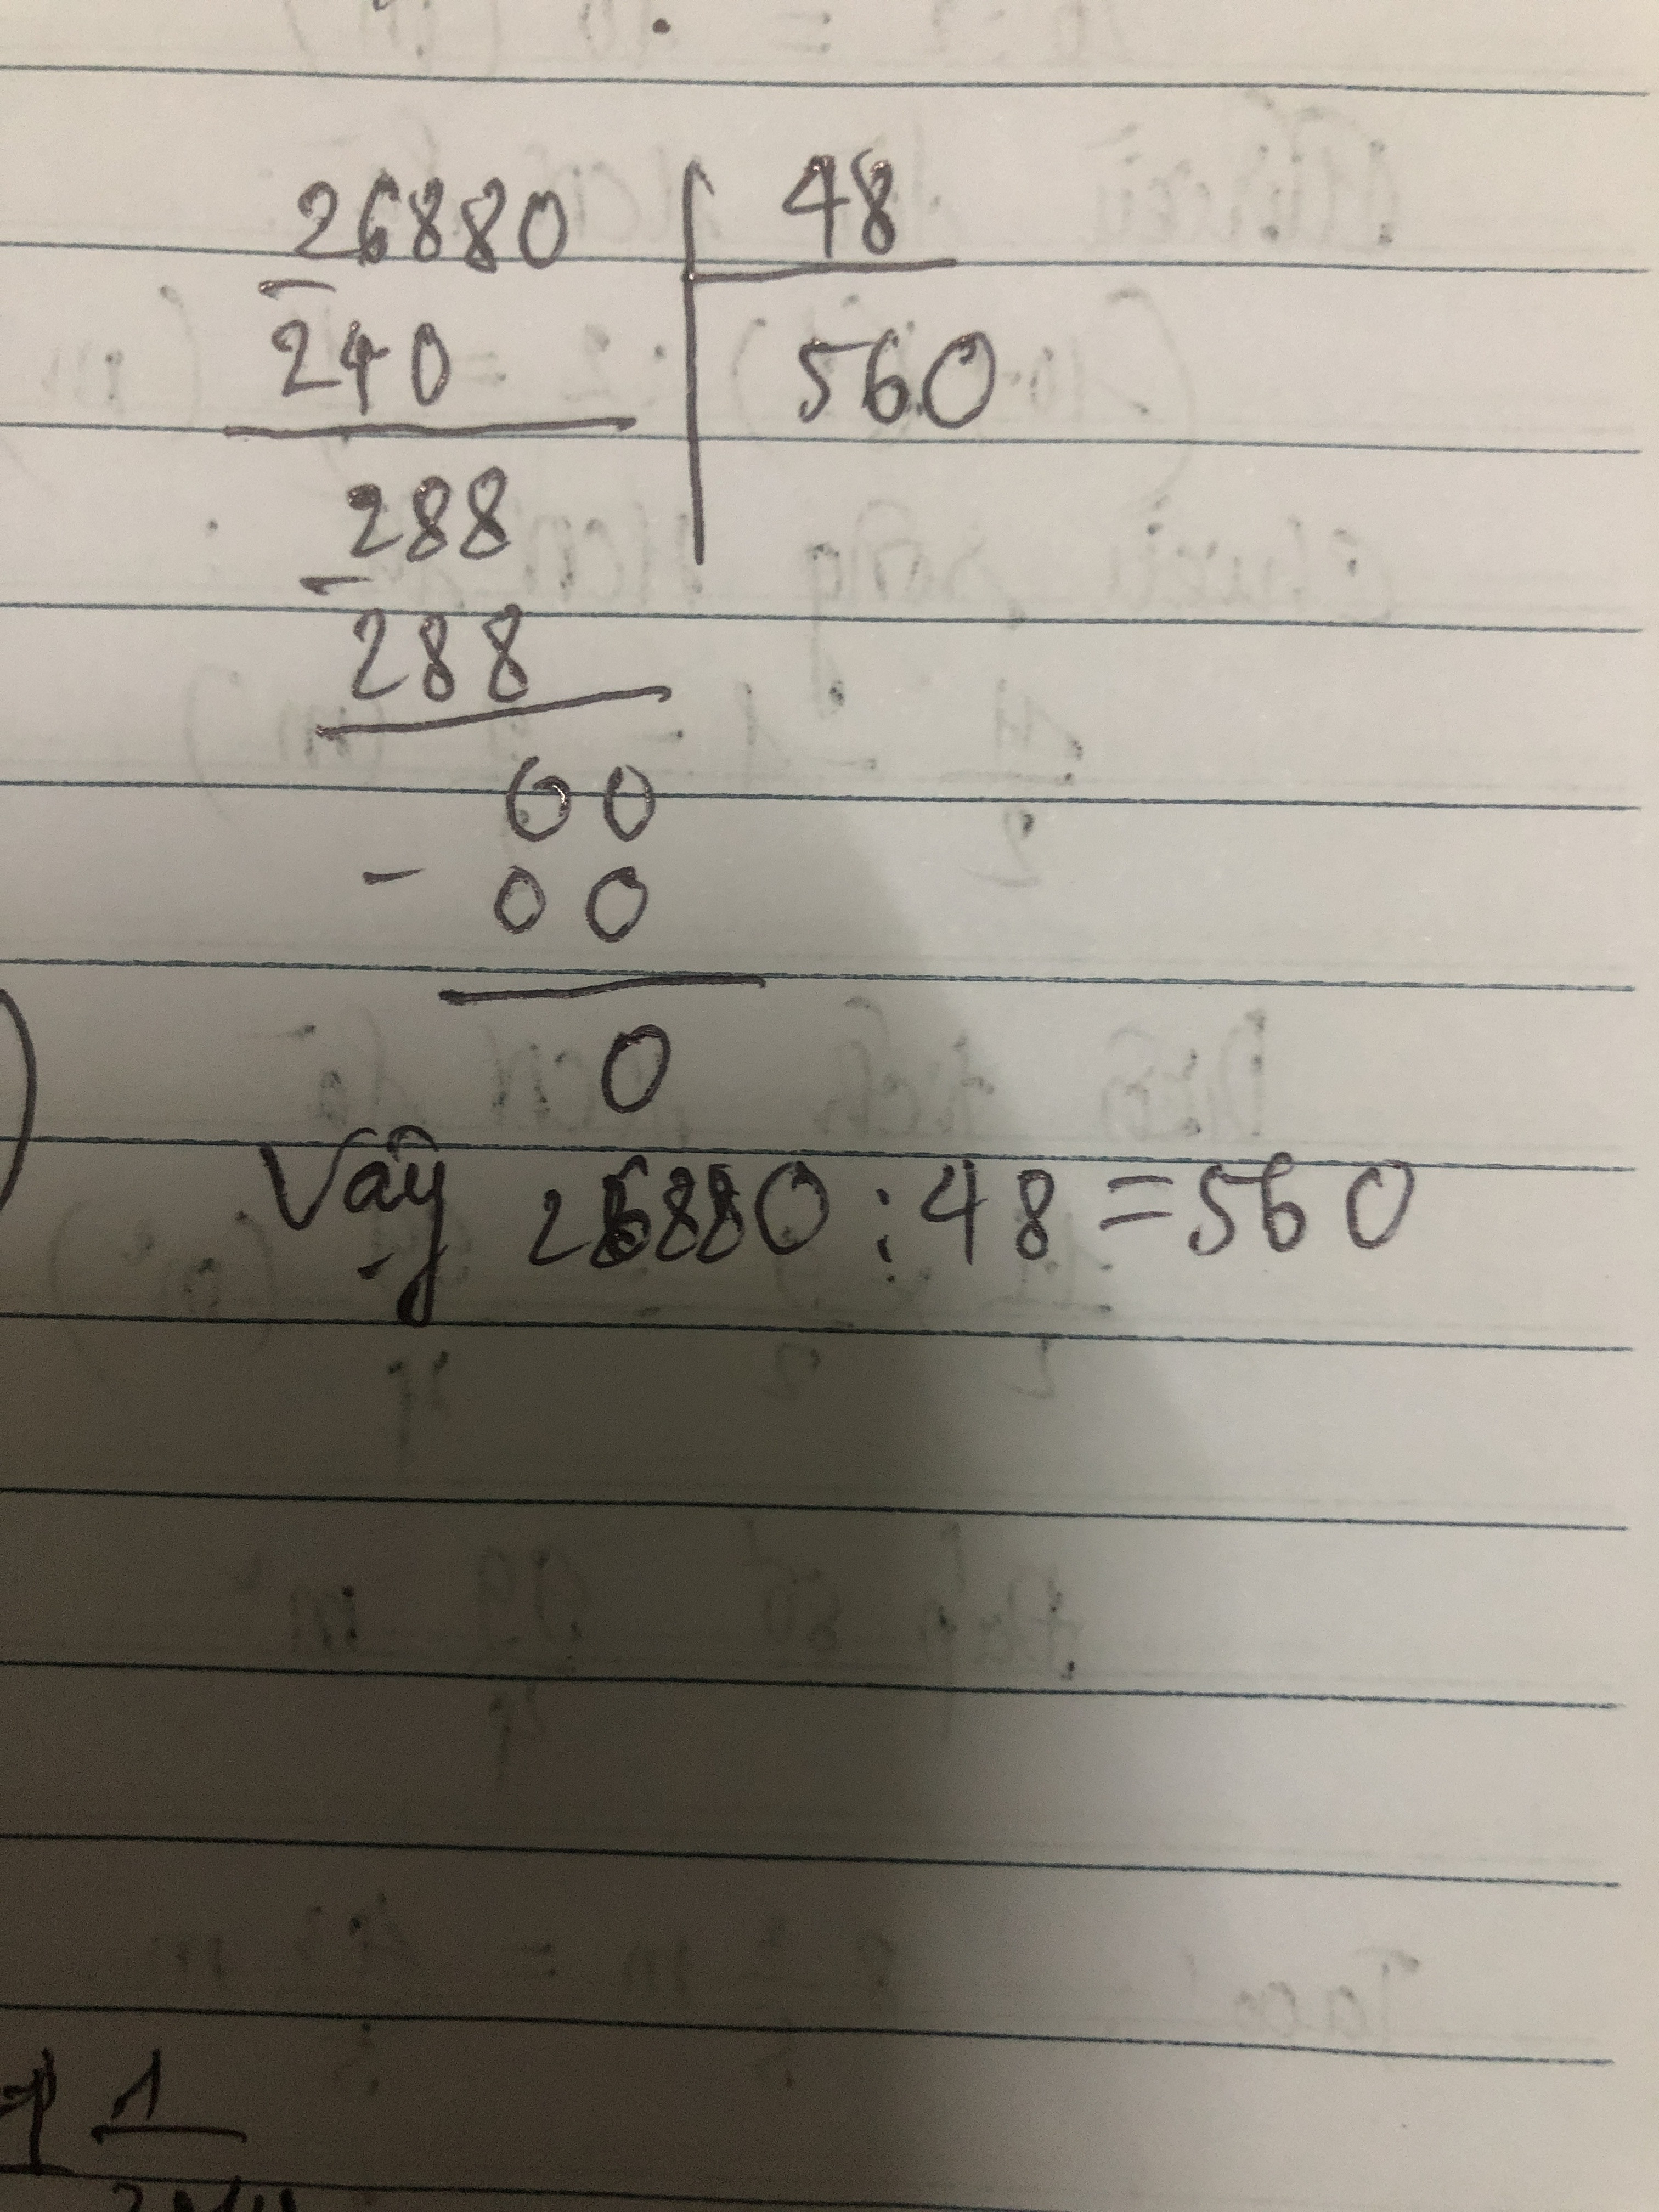 26880 48
- 240 560
288
- 288
00
- 00
0
Vậy 26880 : 48 = 560
1